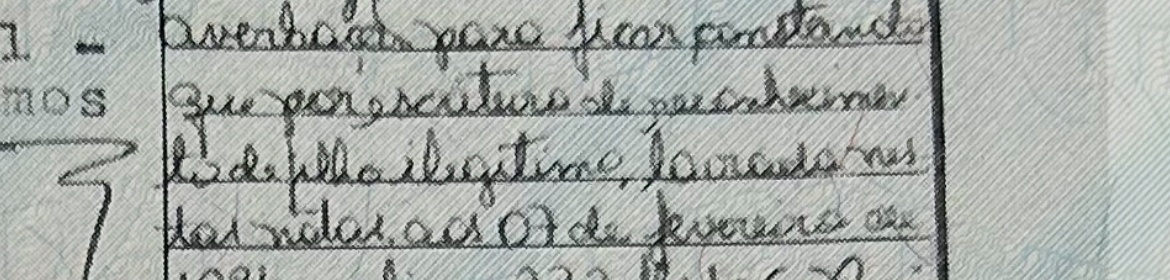 1 - averbação para ficar constando
mos que por escritura de reconhecimen
to de filho ilegitimo, lavrada nes
tas notas, aos 07 de fevereiro de